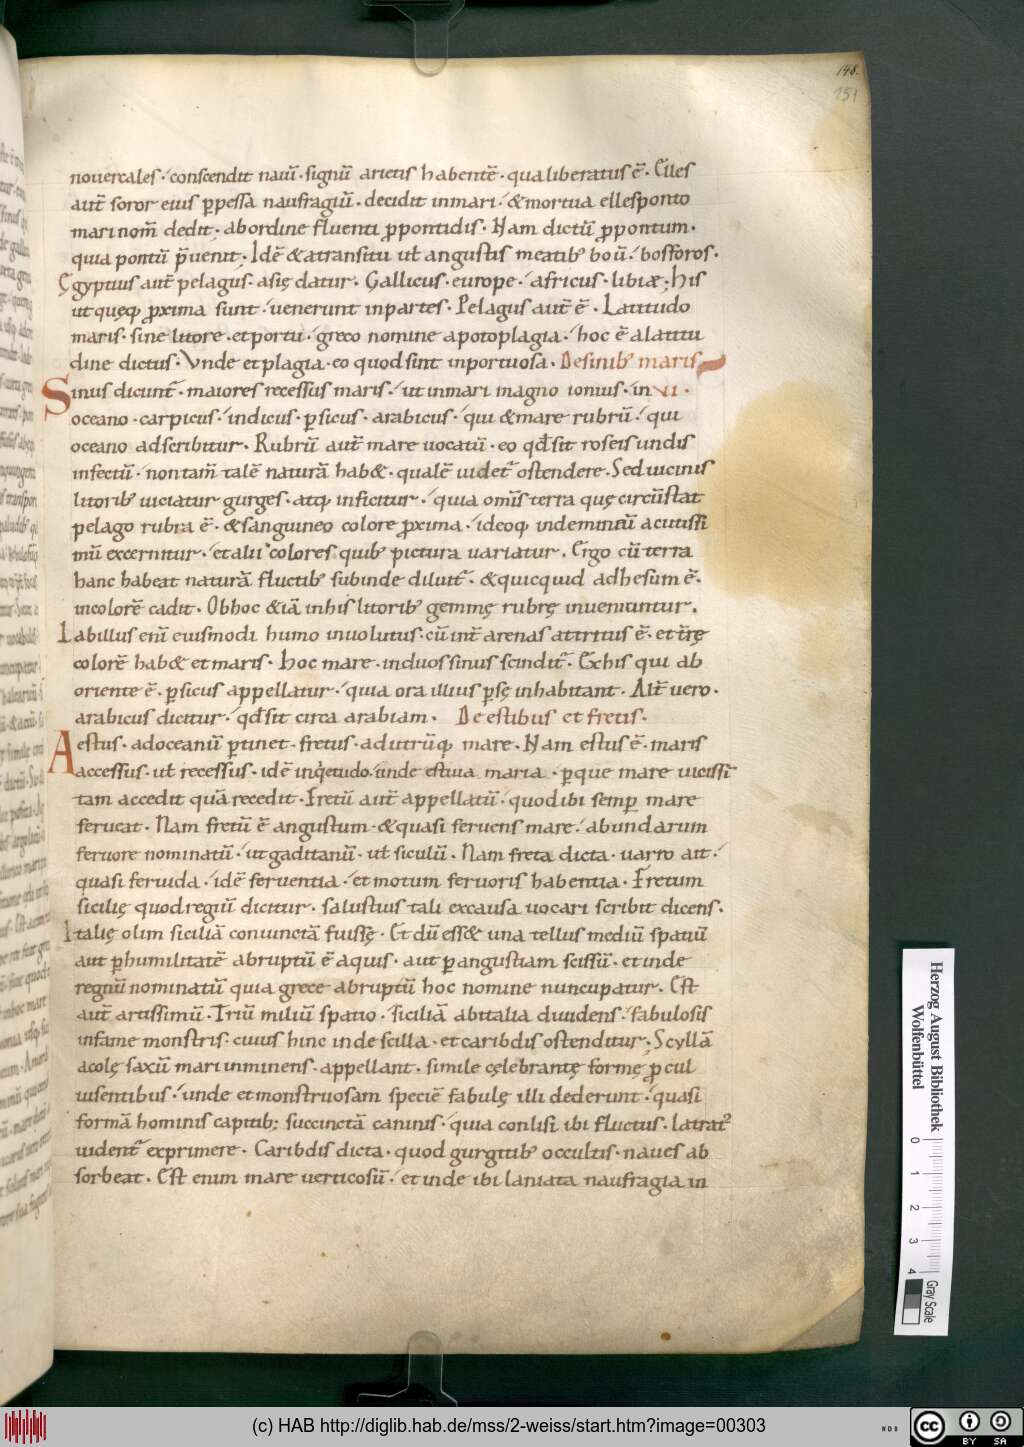 148.
151
nouercales · conscendit nauī · signū arietis habentē · qua liberatus ē · Elles
aut̄ soror eius ꝑpessa naufragiū · decidit inmari · & mortua ellesponto
mari nom̄ dedit · abordine fluenti ꝓpontidis · Nam dictū ꝓpontum ·
quia pontū p̄uenit; Idē & atransitu ut̄ angustis meatibꝫ boū · bosforos ·
Ęgyptius aut̄ pelagus · asię datur · Gallicus · europe · africus · libiæ; his
ut quęqꝫ ꝓxima sunt · uenerunt inpartes · Pelagus aut̄ ē · Latitudo
maris · sine litore · et portu · greco nomine apotoplagia · hoc ē alatitu
dine dictus · Vnde et plagia · eo quod sint inportuosa · De sinibꝫ maris
Sinus dicunt̄ · maiores recessus maris · ut inmari magno ionius · in VI ·
oceano · carpicus · indicus · ꝑsicus · arabicus · qui & mare rubrū · qui
oceano adscribitur · Rubrū aut̄ mare uocatū · eo qd̄ sit roseis undis
infectū · non tam̄ talē naturā hab& · qualē uidet̄ ostendere · Sed uicinis
litoribꝫ uiciatur gurges · atqꝫ inficitur · quia om̄is terra quę circūstat
pelago rubra ē · & sanguineo colore ꝓxima · ideoqꝫ inde miniū acutissi
mū excernitur · et alii colores quibꝫ pictura uariatur · Ergo cū terra
hanc habeat naturā fluctibꝫ subinde diluit̄ · & quicquid adhesum ē ·
incolorē cadit · Ob hoc & iā inhis litoribꝫ gemmę rubrę inueniuntur ·
Labillus eni eiusmodi humo inuolutus · cū int̄ arenas attritus ē · et t̄rę
colorē hab& et maris · Hoc mare · induos sinus scindit̄ · Ex his qui ab
oriente ē · ꝑsicus appellatur · quia ora illius ꝑsę inhabitant · Alt̄ uero ·
arabicus dicitur · qd̄ sit circa arabiam · De estibus et fretis ·
Aestus · ad oceanū ꝑtinet · fretus · ad utrūqꝫ mare · Nam estus ē · maris
accessus · ut̄ recessus · idē inq̇etudo · unde estiua maria · ꝑ que mare uicissi
tam accedit quā recedit · Fretū aut̄ appellatū · quod ibi semꝑ mare
ferueat · Nam fretū ē angustum · & quasi feruens mare · abundarum
feruore nominatū · ut gaditanū · ut̄ siculū · Nam freta dicta · uarro ait ·
quasi feruida · idē feruentia · et motum feruoris habentia · Fretum
sicilię quod regiū dicitur · salustius tali ex causa uocari scribit dicens ·
Italię olim siciliā coniunctā fuisse · Et dū ess& una tellus mediū spatiū
aut ꝑ humilitatē abruptū ē aquis · aut ꝑ angustiam scissū · et inde
regiū nominatū quia grece abruptū hoc nomine nuncupatur · Est
aut̄ artissimū · Triū miliū spatio · siciliā ab italia diuidens · fabulosis
infame monstris · cuius hinc inde scilla · et caribdis ostenditur; Scyllā
acolę saxū mari inminens · appellant · simile cęlebrantę formę ꝓcul
uisentibus · unde et monstruosam speciē fabulę illi dederunt · quasi
formā hominis capitibꝫ; succinctā caninis · quia conlisi ibi fluctus · latrat᷒
uident̄ exprimere · Caribdis dicta · quod gurgitibꝫ occultis · naues ab
sorbeat · Est enim mare uerticosū · et inde ibi laniata naufragia in
Herzog August Bibliothek
Wolfenbüttel
0 1 2 3 4
Gray Scale
(c) HAB http://diglib.hab.de/mss/2-weiss/start.htm?image=00303
WDB
cc BY SA